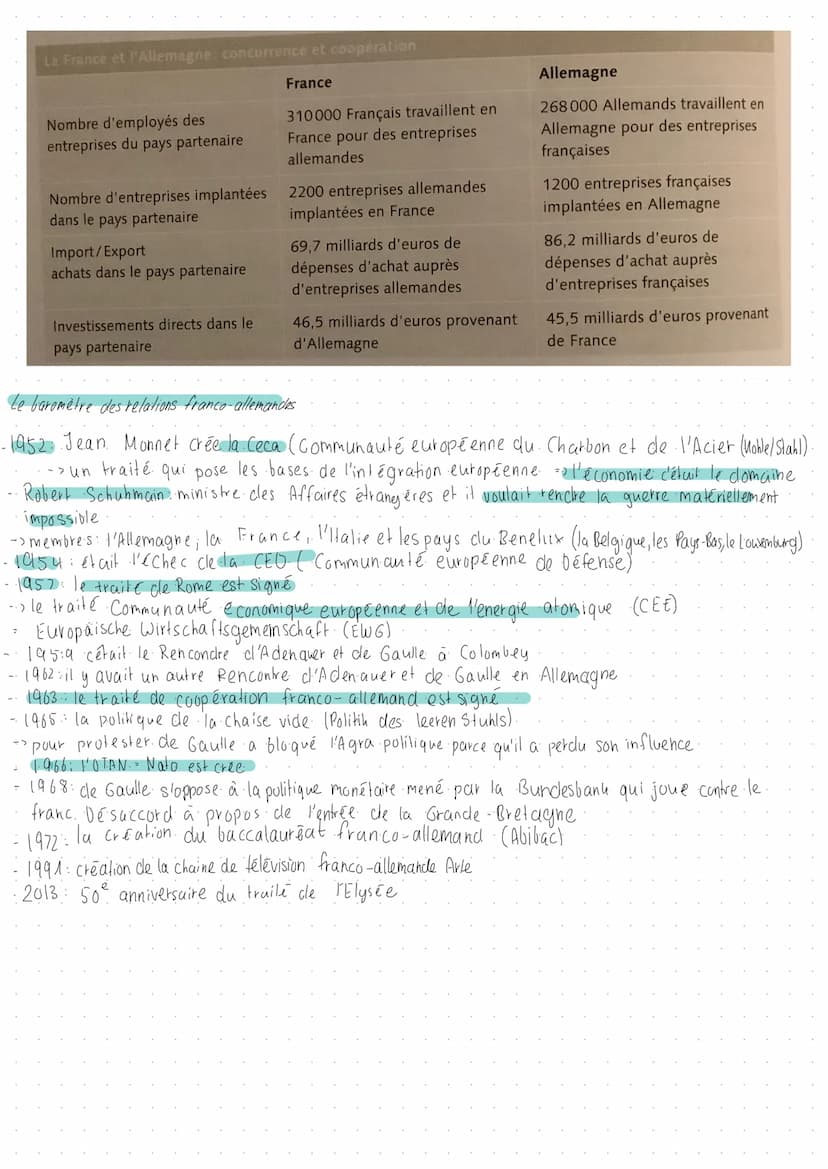 La France et l'Allemagne: concurrence et coopération
France
Allemagne
Nombre d'employés des
entreprises du pays partenaire
310 000 Français travaillent en
France pour des entreprises
allemandes
268 000 Allemands travaillent en
Allemagne pour des entreprises
françaises
Nombre d'entreprises implantées
dans le pays partenaire
2200 entreprises allemandes
implantées en France
1200 entreprises françaises
implantées en Allemagne
Import/Export
achats dans le pays partenaire
69,7 milliards d'euros de
dépenses d'achat auprès
d'entreprises allemandes
86,2 milliards d'euros de
dépenses d'achat auprès
d'entreprises françaises
Investissements directs dans le
pays partenaire
46,5 milliards d'euros provenant
d'Allemagne
45,5 milliards d'euros provenant
de France
Le baromètre des relations franco-allemandes
- 1952: Jean Monnet crée la Ceca (Communauté européenne du Charbon et de l'Acier (Kohle/Stahl)
-> un traité qui pose les bases de l'intégration européenne => l'économie c'était le domaine
- Robert Schuhmain: ministre des Affaires étrangères et il voulait rendre la guerre matériellement
impossible
-> membres: l'Allemagne, la France, l'Italie et les pays du Benelux (la Belgique, les Pays-Bas, le Louxemburg)
- 1954: était l'échec de la CED (Communauté européenne de Défense)
- 1957: le traité de Rome est signé
-> le traité Communauté économique européenne et de l'énergie atomique (CEE)
= Europäische Wirtschaftsgemeinschaft (EWG)
- 1959 c'était le Rencondre d'Adenauer et de Gaulle à Colombey
- 1962: il y avait un autre Rencontre d'Adenauer et de Gaulle en Allemagne
- 1963: le traité de coopération franco-allemand est signé
- 1965: la politique de la chaise vide (Politik des leeren Stuhls)
-> pour protester de Gaulle a bloqué l'Agra politique parce qu'il a perdu son influence
- 1966: l'OTAN = Nato est crée
- 1968: de Gaulle s'oppose à la politique monétaire mené par la Bundesbank qui joue contre le
franc. Désaccord à propos de l'entrée de la Grande-Bretagne
- 1972: la création du baccalauréat franco-allemand (Abibac)
- 1991: création de la chaine de télévision franco-allemande Arte
- 2013: 50e anniversaire du traité de l'Elysée